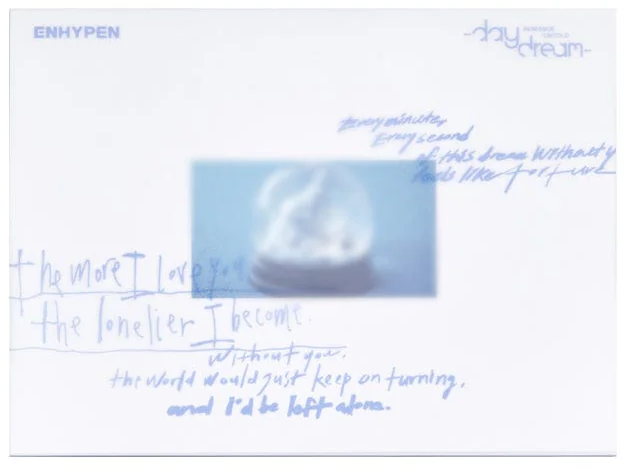 ENHYPEN
-day
ROMANCE
UNTOLD
dream-
Every minute,
Every second
of this dream without y
feels like torture
the more I love you
the lonelier I become.
without you,
the world would just keep on turning,
and I'd be left alone.